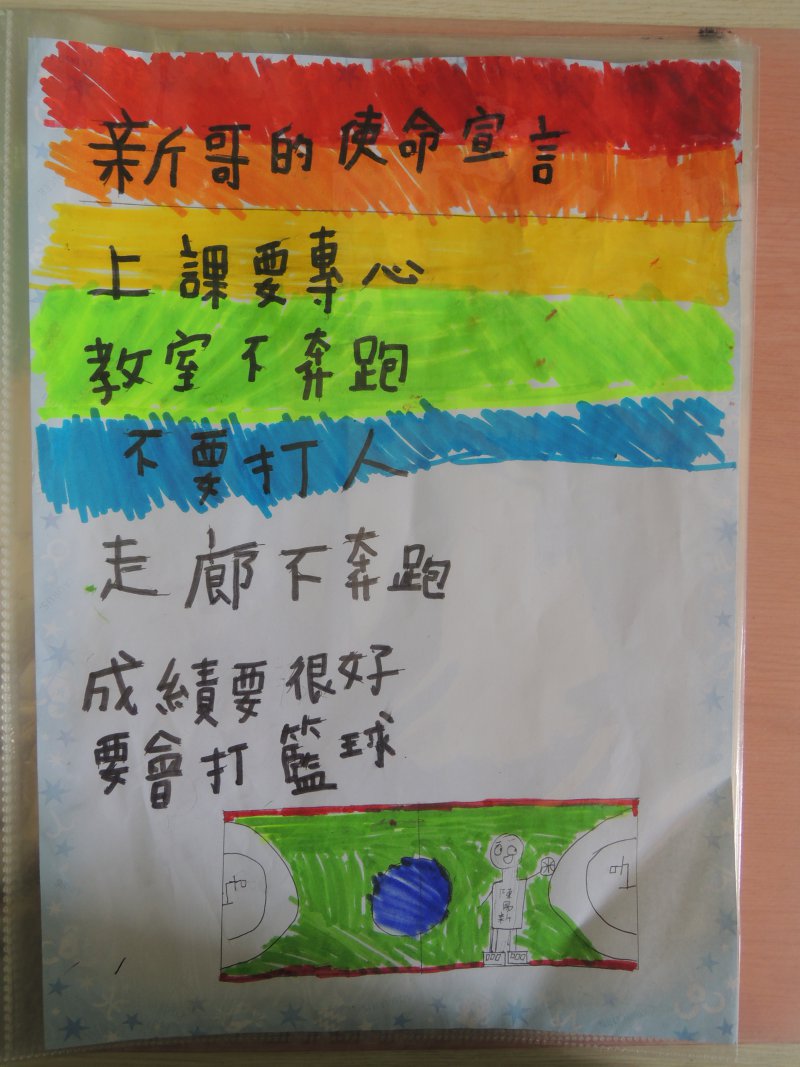 新哥的使命宣言
上課要專心
教室不奔跑
不要打人
走廊不奔跑
成績要很好
要會打籃球